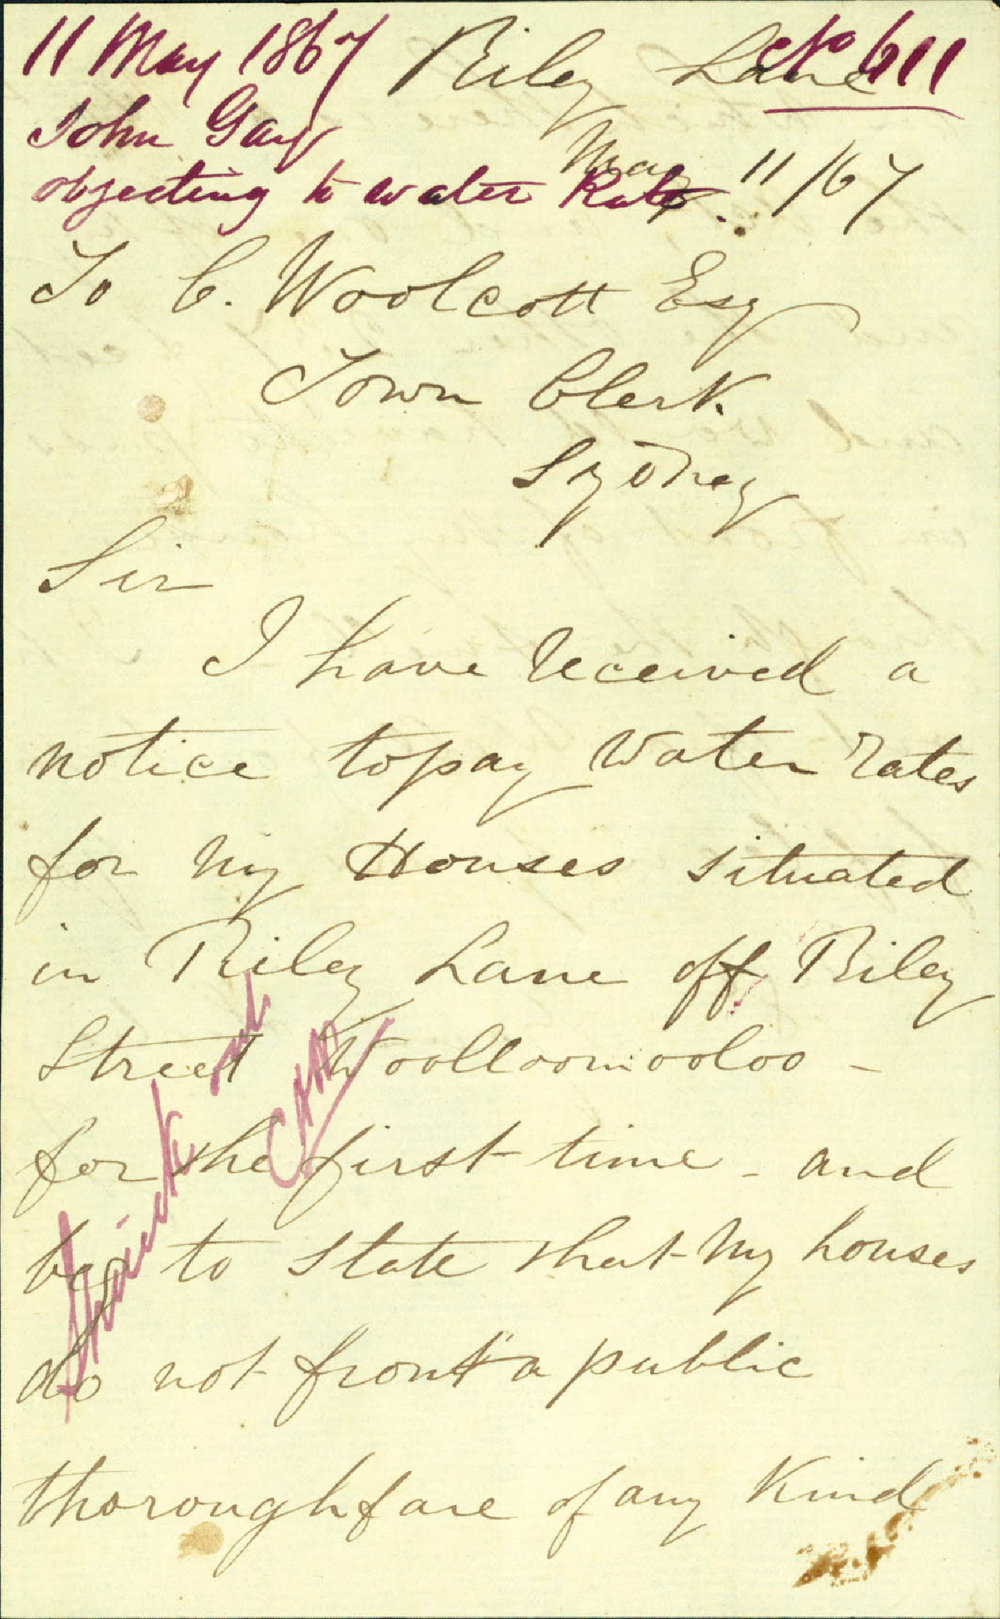 11 May 1867
No 611
John Gay
objecting to water Rate
Riley Lane
May 11/67
To C. Woolcott Esq
Town Clerk.
Sydney
Sir
I have received a
notice to pay Water rates
for my Houses situated
in Riley Lane off Riley
Street Woolloomooloo -
for the first time - and
beg to state that my houses
do not front a public
thoroughfare of any Kind